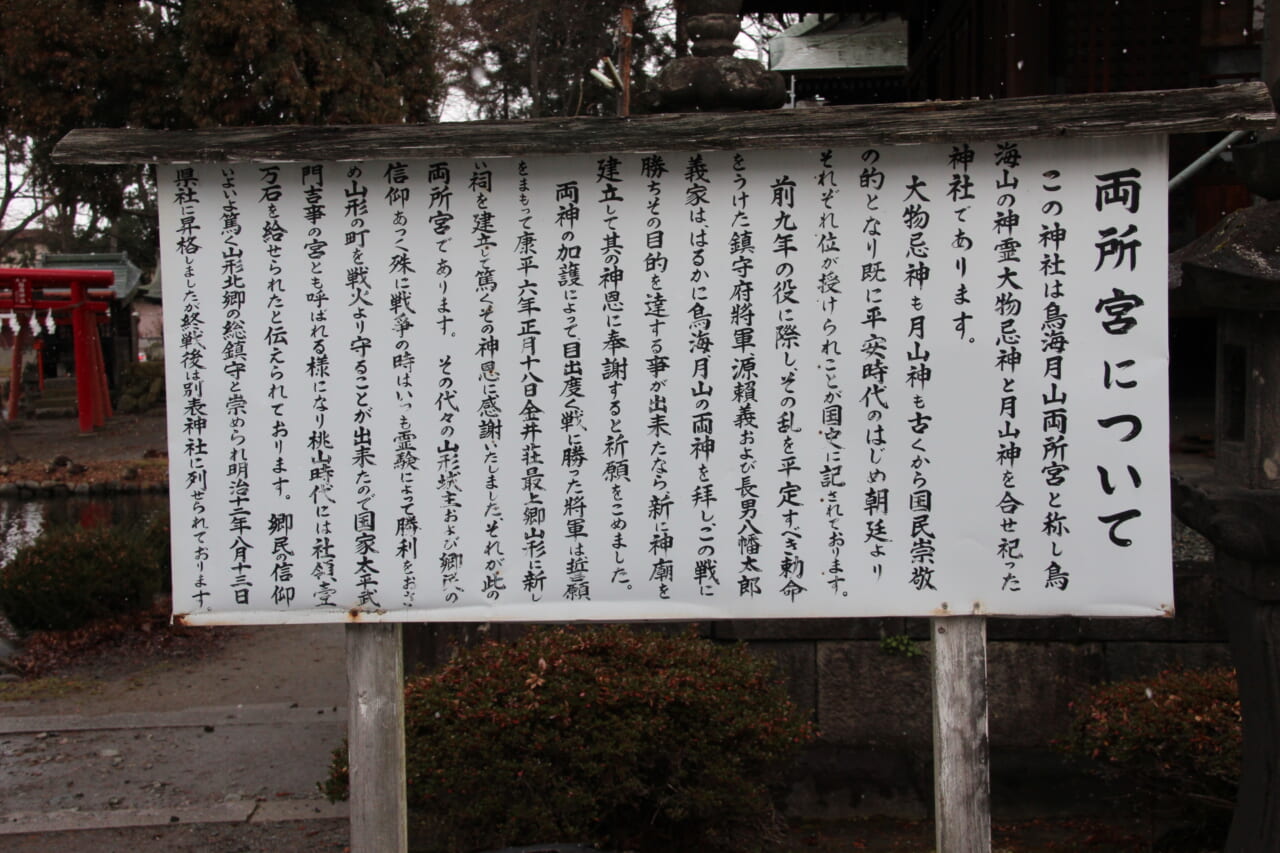 両所宮について
この神社は鳥海月山両所宮と称し鳥
海山の神霊大物忌神と月山神を合せ祀った
神社であります。
大物忌神も月山神も古くから国民崇敬
の的となり既に平安時代のはじめ朝廷より
それぞれ位が授けられことが国史に記されております。
前九年の役に際しその乱を平定すべき勅命
をうけた鎮守府将軍源頼義および長男八幡太郎
義家ははるかに鳥海月山の両神を拝しこの戦に
勝ちその目的を達する事が出来たなら新に神廟を
建立して其の神恩に奉謝すると祈願をこめました。
両神の加護によって目出度く戦に勝った将軍は誓願
をまもって康平六年正月十八日金井荘最上郷山形に新し
い祠を建立して篤くその神恩に感謝いたしました。それが此の
両所宮であります。その代々の山形城主および郷民の
信仰あつく殊に戦争の時はいつも霊験によって勝利をおさ
め山形の町を戦火より守ることが出来たので国家太平武
門吉事の宮とも呼ばれる様になり桃山時代には社領壹
万石を給せられたと伝えられております。郷民の信仰
いよいよ篤く山形北郷の総鎮守と崇められ明治十二年八月十三日
県社に昇格しましたが終戦後は別表神社に列せられております。